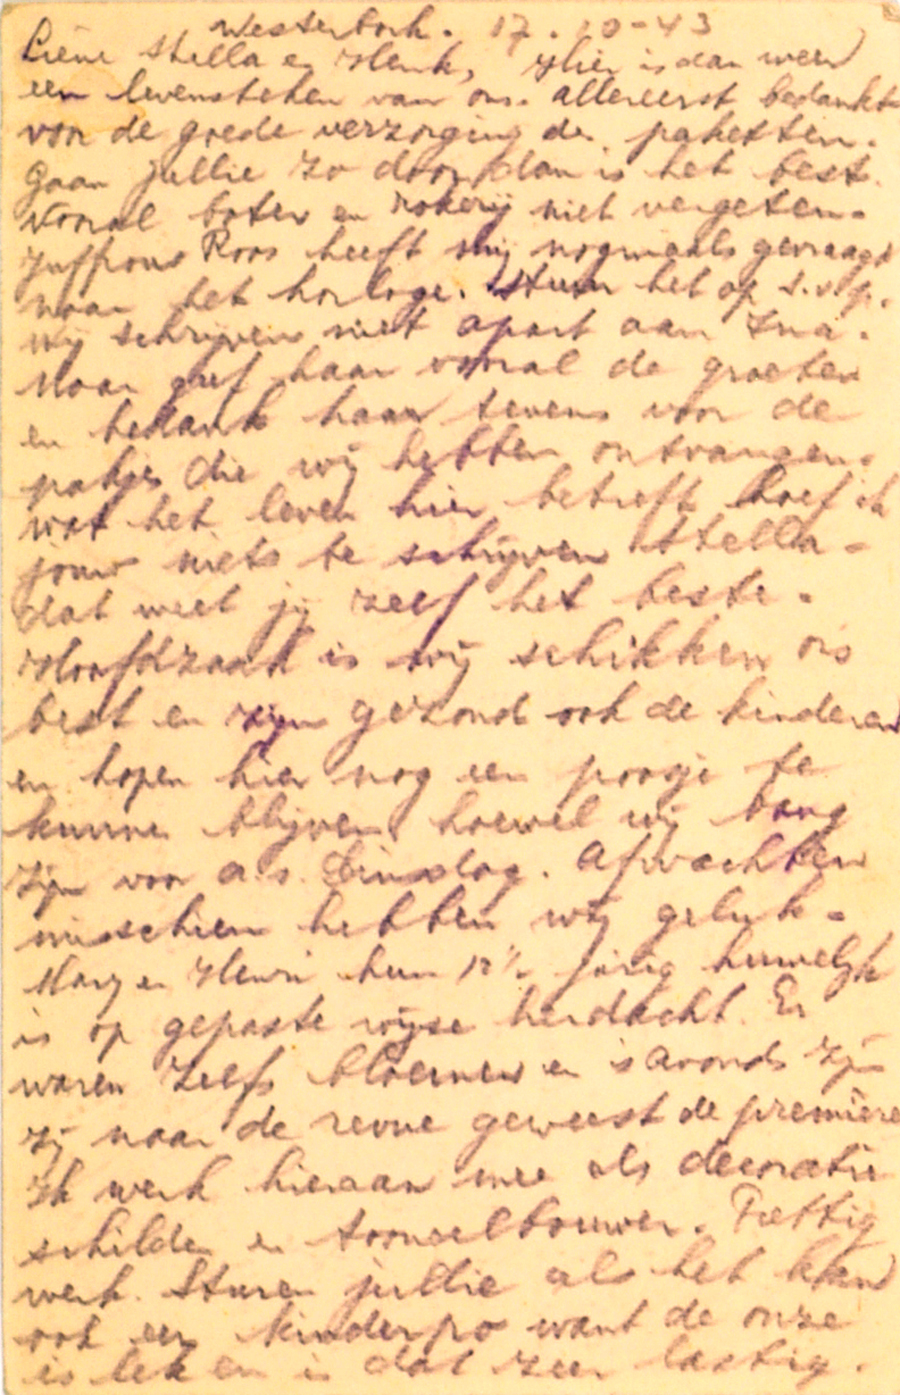 Westerbork. 17.10-43
Lieve Stella en Henk, Hier is dan weer
een levensteken van ons. allereerst bedankt
voor de goede verzorging der paketten.
Gaan jullie zo door dan is het best.
Vooral boter en rokerij niet vergeten.
Juffrouw Roos heeft mij nogmaals gevraagd
naar het horloge. Stuur het op s.v.p.
wij schrijven niet apart aan Ina.
Maar geef haar vooral de groeten
en bedank haar tevens voor de
pakjes die wij hebben ontvangen.
wat het leven hier betreft hoef ik
jouw niets te schrijven Stella.
dat weet jij zelf het beste.
Hoofdzaak is wij schikken ons
best en zijn gezond ook de kinderen
en hopen hier nog een poosje te
kunnen blijven hoewel wij bang
zijn voor a.s. Dinsdag. Afwachten
misschien hebben wij geluk.
Mary en Henri hun 12½ jarig huwelijk
is op gepaste wijse herdacht. Er
waren zelfs bloemen en s'avonds zijn
zij naar de revue geweest de première
Ik werk hieraan mee als decoratie
schilder en tooneelbouwer. Prettig
werk. Sturen jullie als het kan
ook een kinderpo want de onze
is lek en is dat zeer lastig.